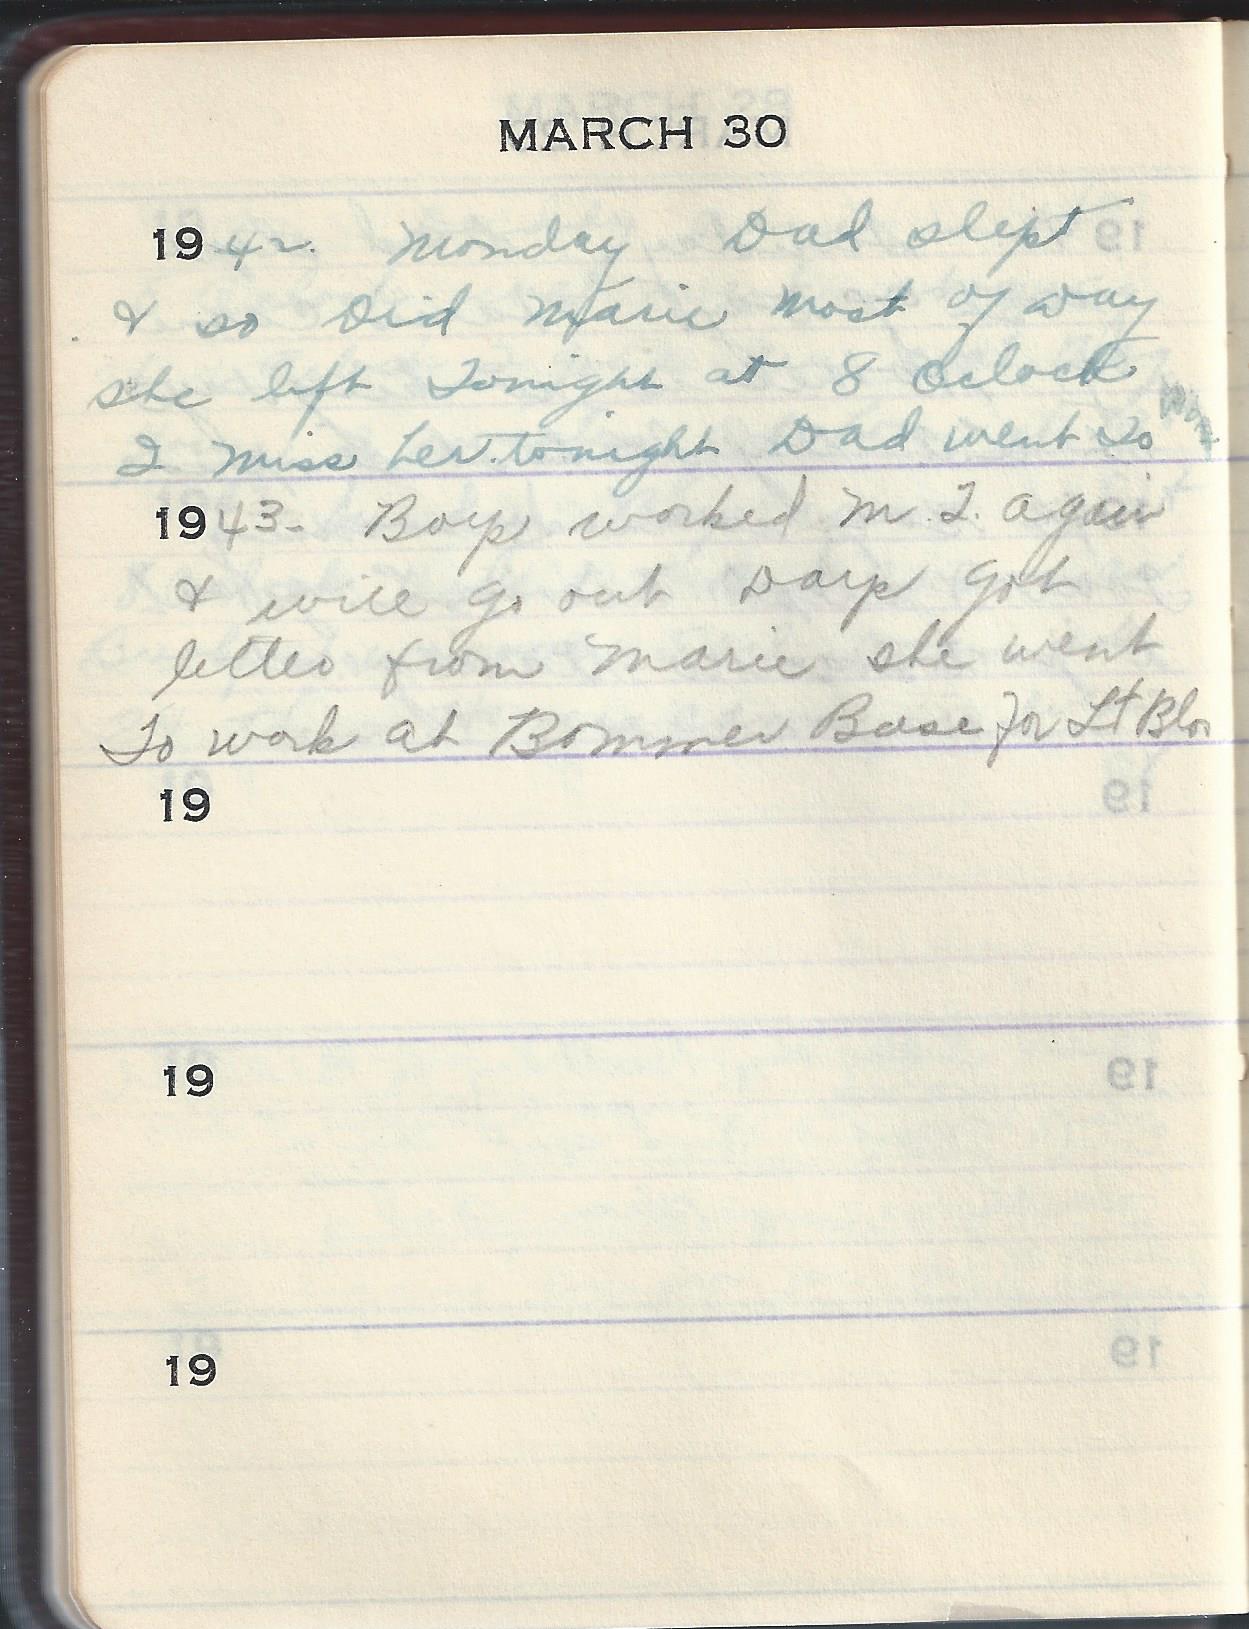 MARCH 30
1942. Monday Dad slept
& so Did Marie most of Day
she left Tonight at 8 Oclock
I miss her tonight Dad went to work
1943- Boys worked M.T. again
& will go out Days got
letter from Marie she went
To work at Bommer Base for Lt Blo
19
19
19